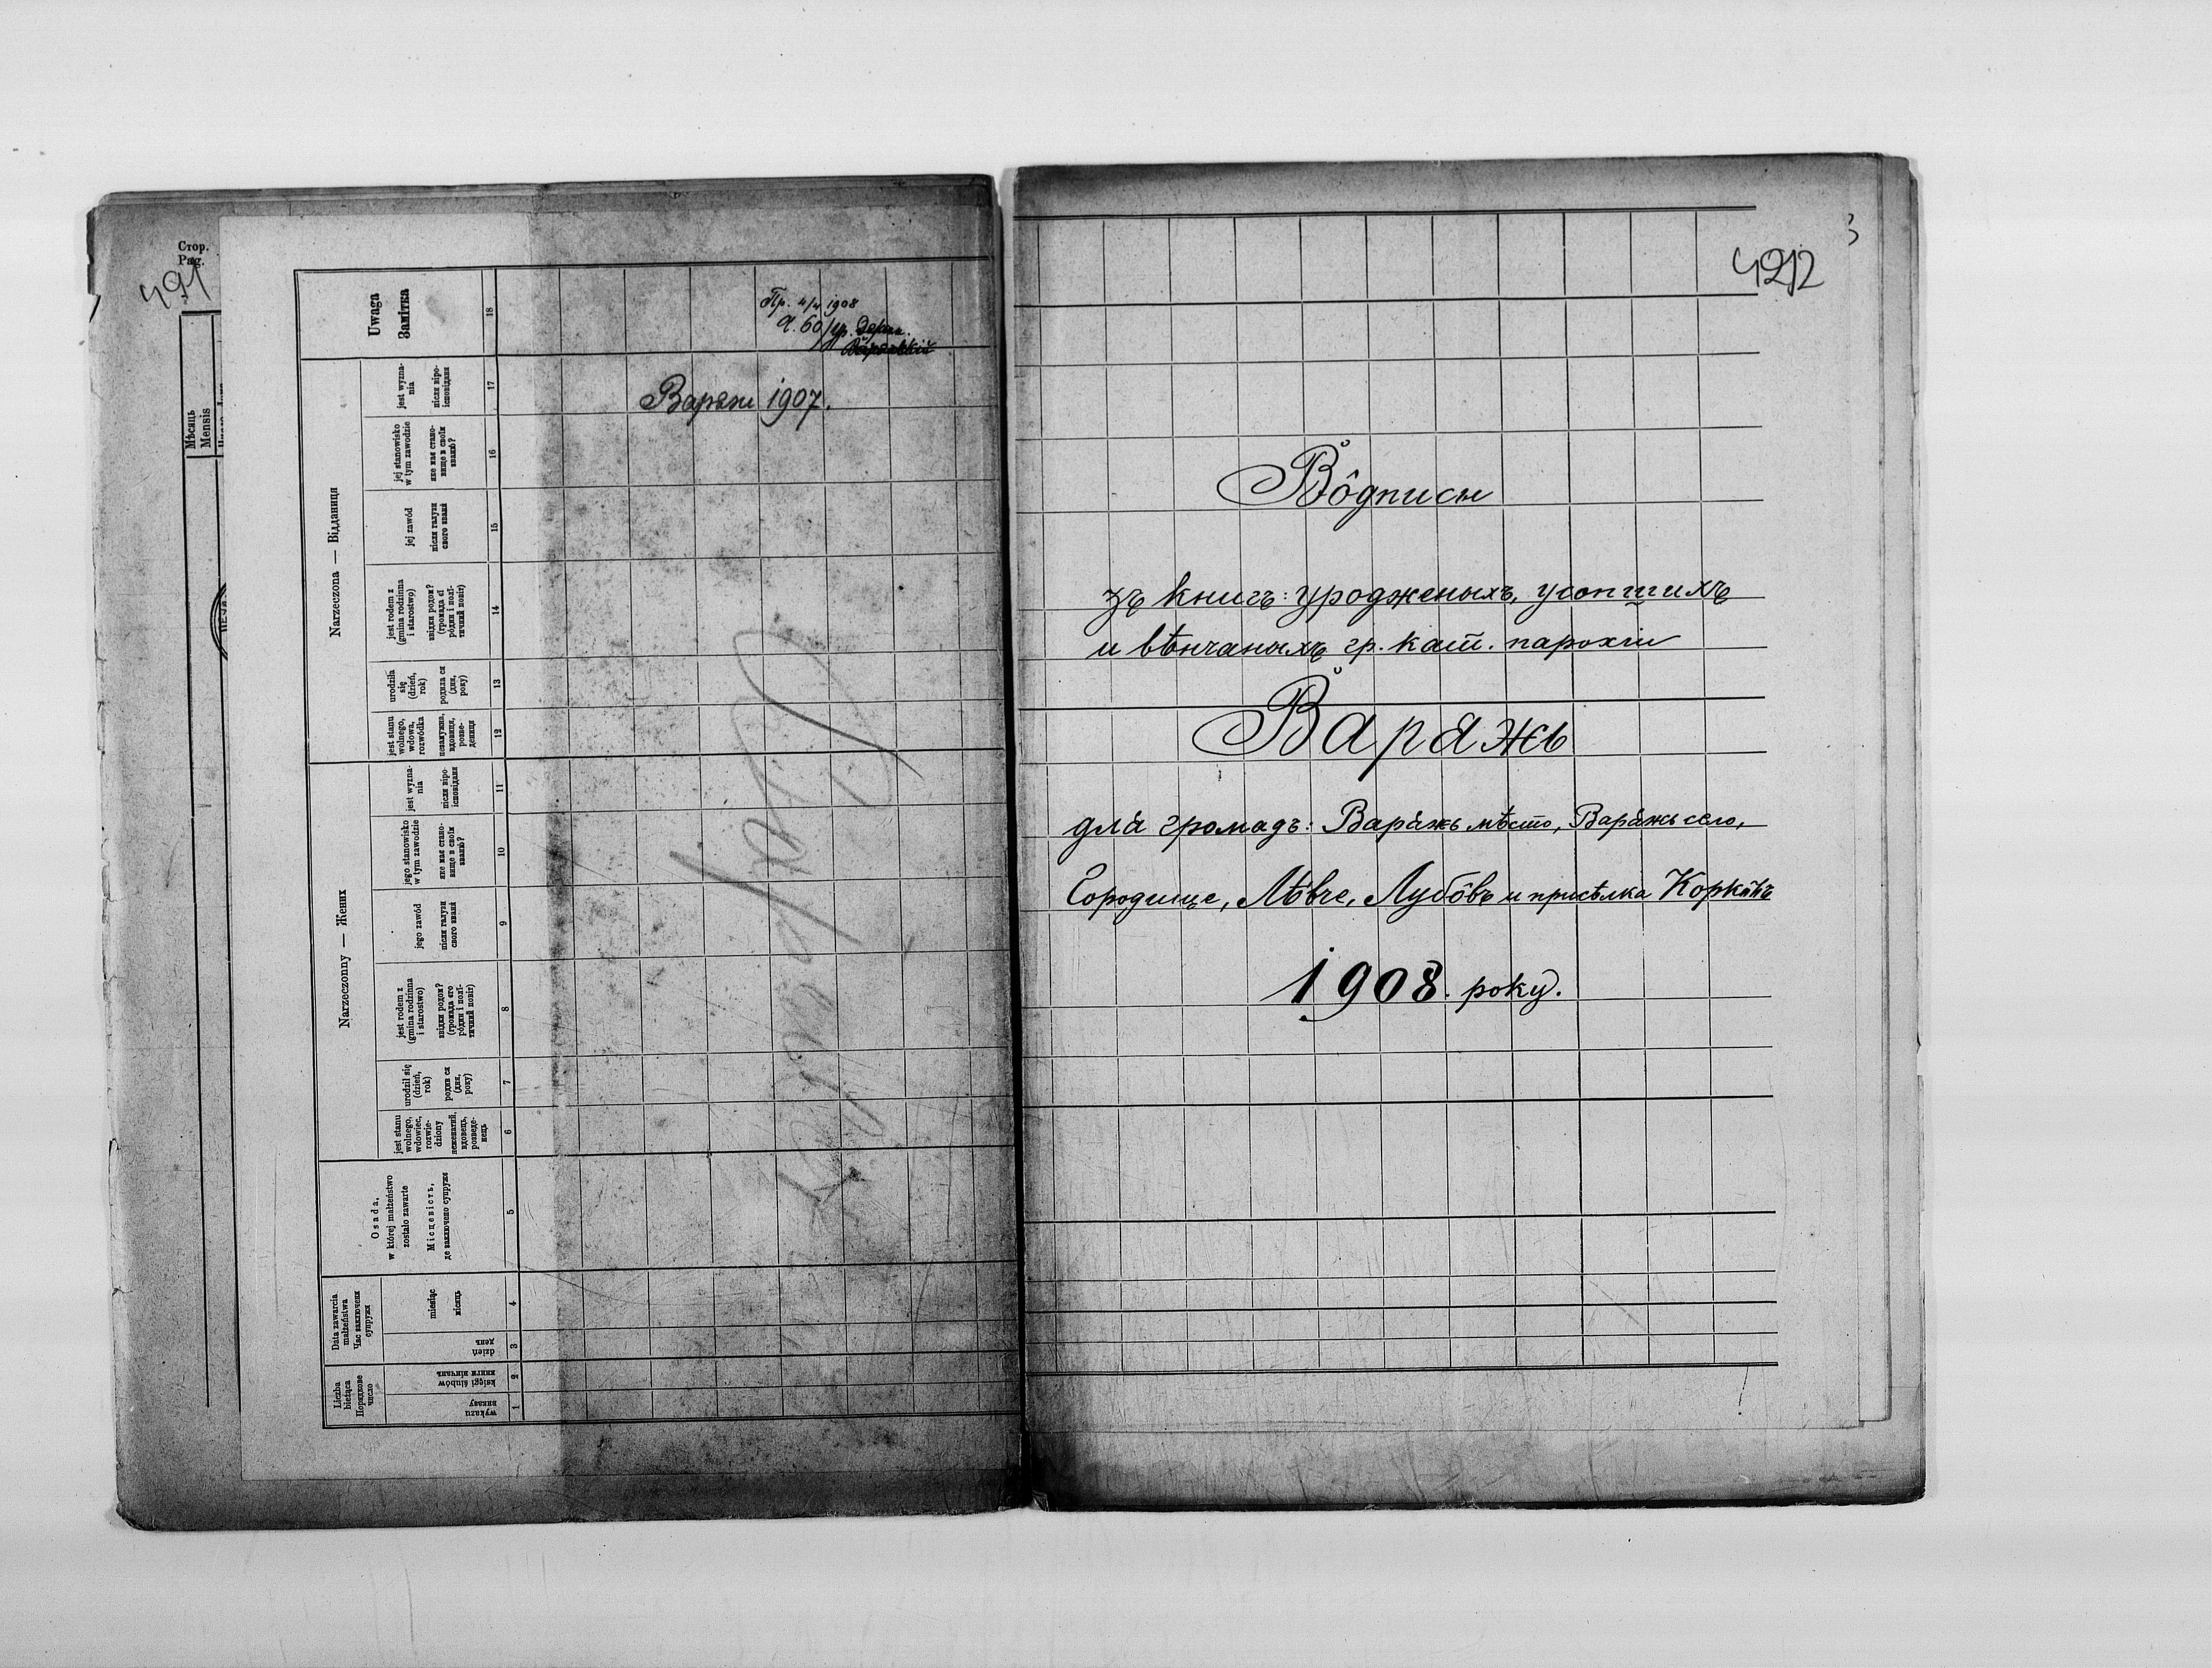 Стор.
Pag.
491
Мѣсяць
Mensis
Uwaga
Замітка
18
Пр. 4/4 1908
Ч. 60
Варяж 1907.
Narzeczona — Відданиця
jest wyzna-
nia
після віро-
ісповідання
17
jej stanowisko
w tym zawodzie
яке має стано-
вище в своїм
званю?
16
jej zawód
після галузи
свого званя
15
jest rodem z
(gmina rodzinna
i starostwo)
звідки родом?
(громада єї
рóдки і полї-
тичний повіт)
14
urodziła
się
(dzień,
rok)
родила ся
(дня,
року)
13
jest stanu
wolnego,
wdowa,
rozwódka
незамужна,
вдовиця,
розве-
дениця
12
Narzeczonny — Жених
jest wyzna-
nia
після віро-
ісповідання
11
jego stanowisko
w tym zawodzie
яке має стано-
вище в своїм
званю?
10
jego zawód
після галузи
свого званя
9
jest rodem z
(gmina rodzinna
i starostwo)
звідки родом?
(громада єго
рóдки і полї-
тичний повіт)
8
urodził się
(dzień,
rok)
родив ся
(дня,
року)
7
jest stanu
wolnego,
wdowiec,
rozwie-
dziony
неженатий,
вдовець,
розведе-
нець
6
Osada,
w której małżeństwo
zostało zawarte
Місцевість,
де заключено супруже
5
Data zawarcia
małżeństwa
Час заключеня
супружя
miesiąc
місяць
4
dzień
день
3
Liczba
bieżąca
Порядкове
число
księgi ślubów
книги вінчань
2
wykazu
виказу
1
492
Вôдписы
зъ книгъ: уродженыхъ, усопшихъ
и вѣнчаныхъ гр. кат. парохіи
Варяжь
для громадъ: Варяжь мѣсто, Варяжь село,
Городище, Лѣвче, Лубôвъ и присѣлка Коркôвъ
1908. року.